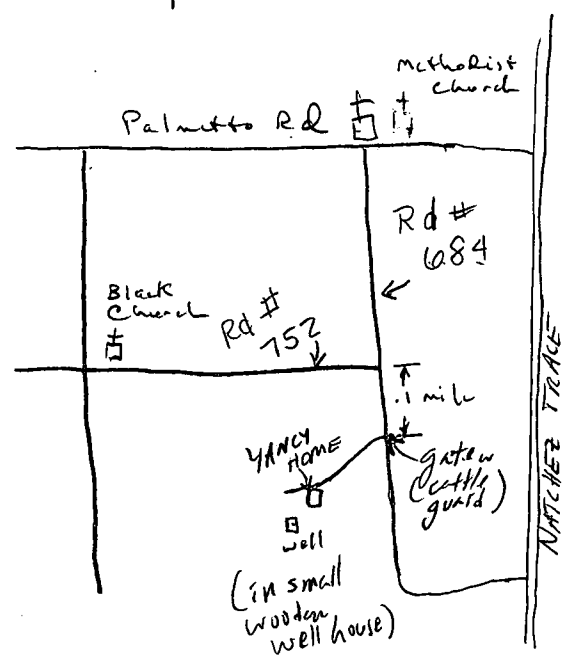 Methodist
Church
Palmetto Rd
Rd #
684
Black
Church
Rd #
752
.1 mile
YANCY
HOME
gate w
(cattle
guard)
well
(in small
wooden
well house)
NATCHEZ TRACE